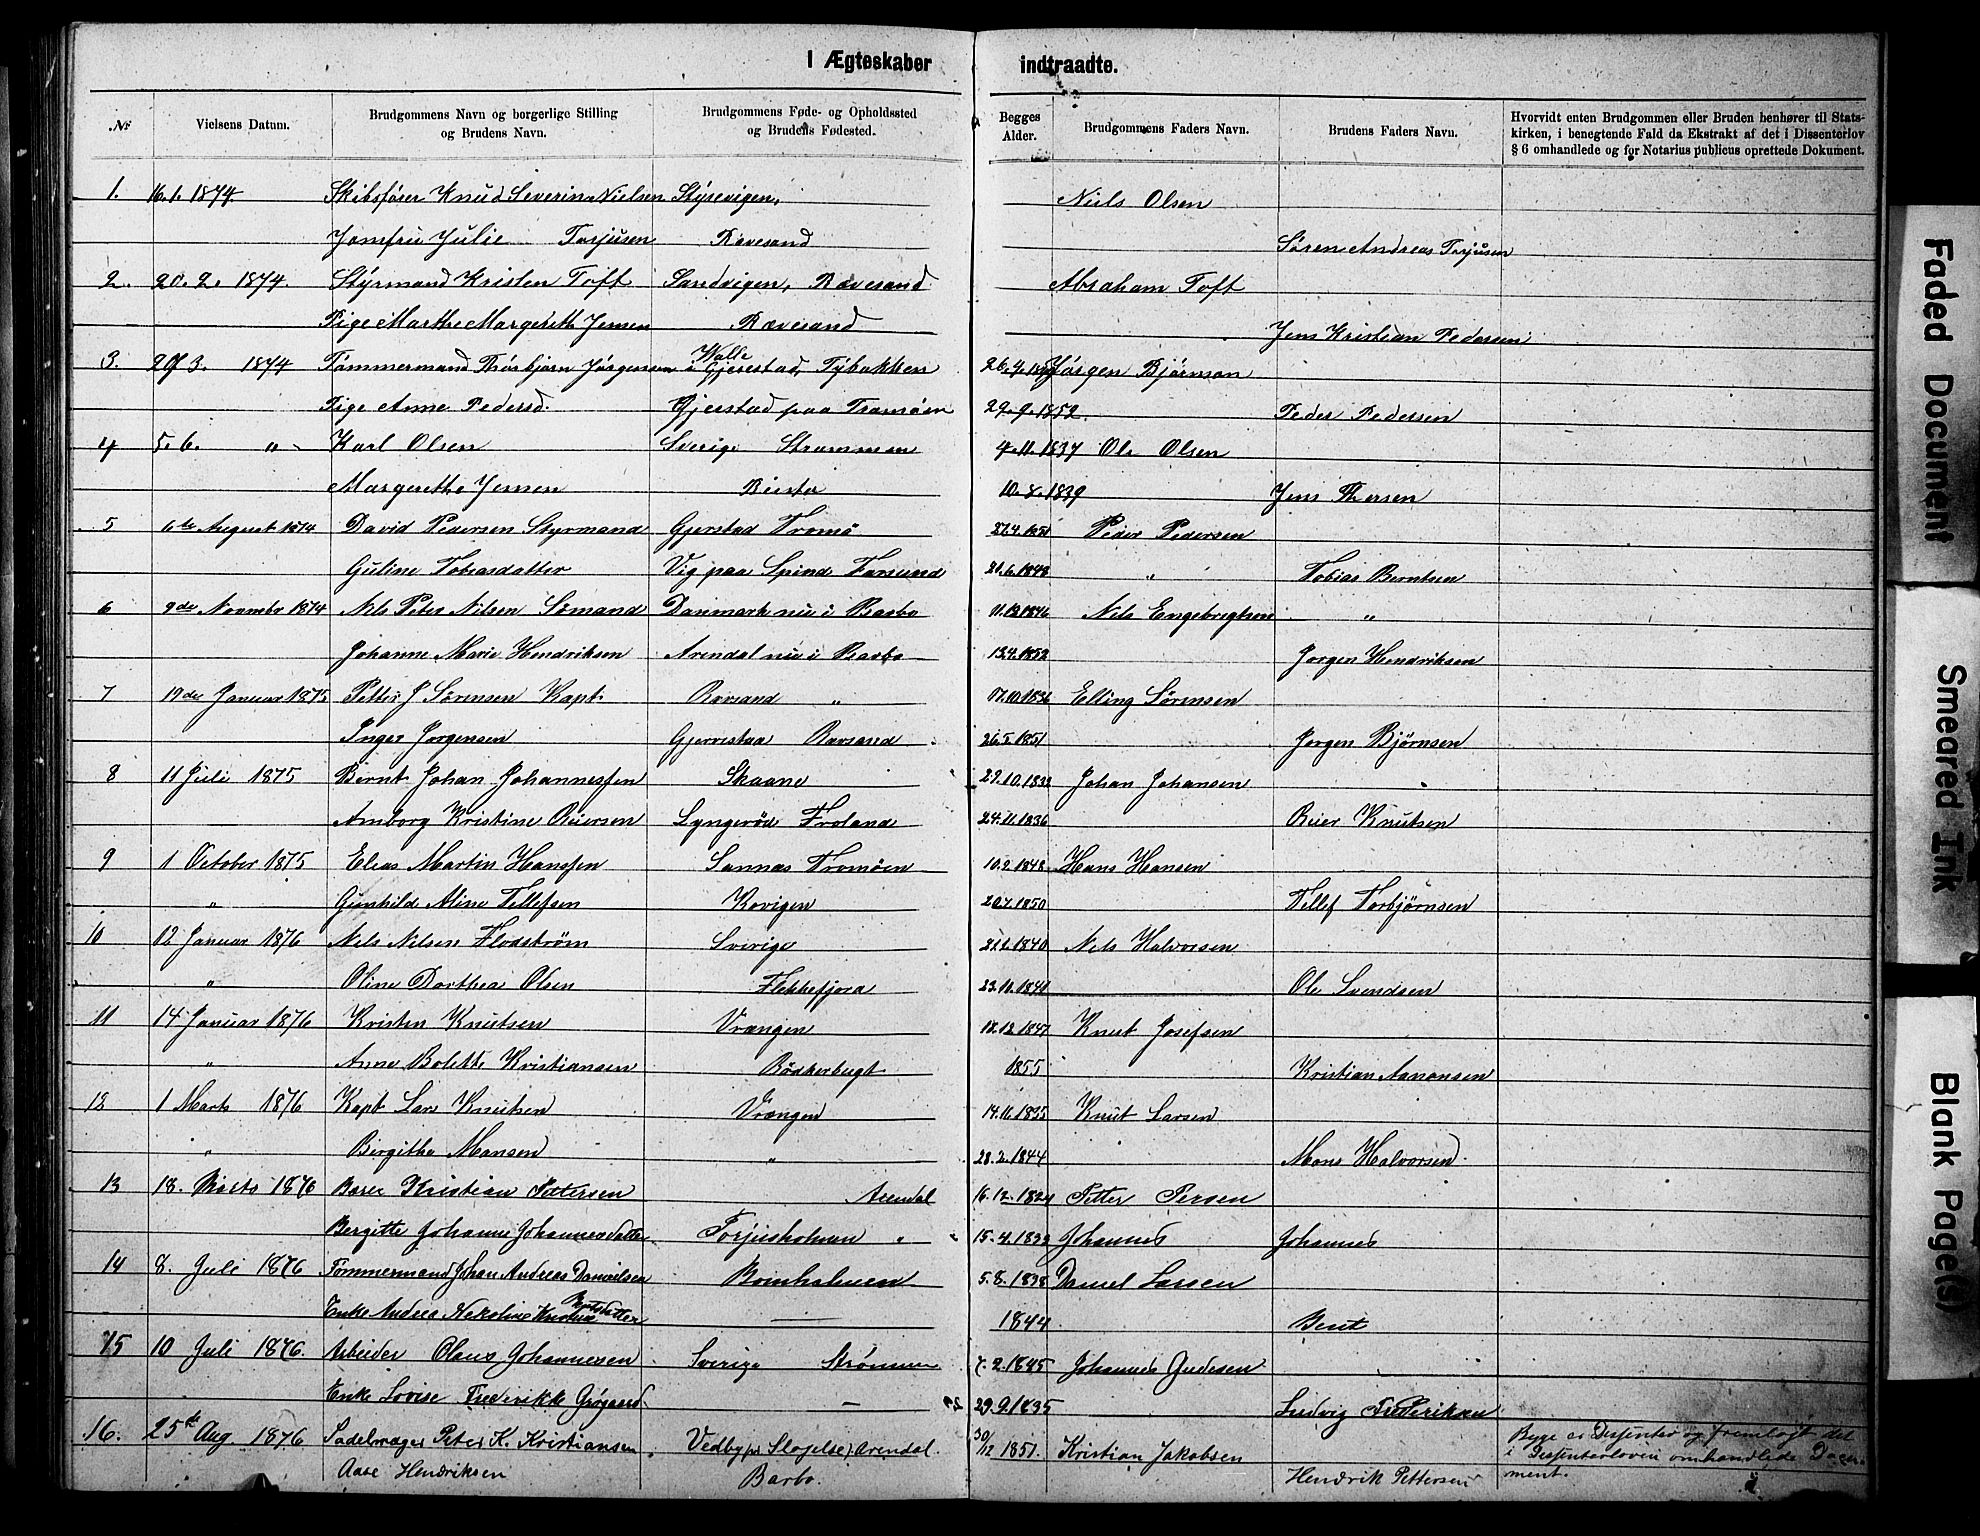 I Ægteskaber indtraadte.
№ Vielsens Datum. Brudgommens Navn og borgerlige Stilling og Brudens Navn. Brudgommens Føde- og Opholdssted og Brudens Fødested. Begges Alder. Brudgommens Faders Navn. Brudens Faders Navn. Hvorvidt enten Brudgommen eller Bruden henhører til Statskirken, i benegtende Fald da Ekstrakt af det i Dissenterlov § 6 omhandlede og for Notarius publicus oprettede Dokument.
1. 16.1.1874. Skibsfører Knud Severin Nielsen Styrevigen, Niels Olsen
Jomfru Julie Torjusen Rævesand Søren Andreas Torjusen
2. 20.2. 1874. Styrmand Kristen Toft Sandvigen, Rævesand Abraham Toft
Pige Marthe Margereth Jensen Rævesand Jens Kristian Pedersen
3. 29 3. 1874 Tømmermand Thorbjørn Jørgensen Walle i Gjerestad, Tybakken Jørgen Bjørnson
Pige Anne Pedersd. Gjerstad paa Tromøen 29.9.1852. Peder Pedersen
4 5.6. " - Karl Olsen Sverige Strømmen 4.11.1837 Ole Olsen
Margerethe Jensen 10.8.1839 Jens
5 6te August 1874 David Pedersen Styrmand Gjerstad Tromø 27.4.1851 Peder Pedersen
Guline Tobiasdatter Vig paa Spind Farsund 21.6.1848 " Tobias Berntsen
6 9de Novembr 1874 Nils Peter Nilsen Sømand Danmark nu i Barbo 11.12.1846 Nils Engebregtsen "
Johanne Marie Hendriksen Arendal nu i Barbo 13.4.1852 Jorgen Hendriksen
7 19de Januar 1875 Petter J Sørensen Kapt. Ravsand " 17.10.1836 Elling Sørensen
Inger Jorgensen Gjervestad Ravsand 26.5.1851 Jorgen Bjørnsen
8 11 Juli 1875 Bernt Johan Johannessen Skaane 29.10.1833 Johan Johansen
Amborg Kristine Reiersen Lyngerød Froland 24.11.1836 Reier Knutsen
9 1 October 1875 Elias Martin Hanssen Sannæs Tromøen 10.2.1848 Hans Hansen
" Gunhild Aline Tellefsen Kovigen 20.7.1850 Tellef Torbjørnsen
10 12 Januar 1876 Nels Nilsen Flodstrøm Sverige 21.2.1840 Nels Halvorsen
" Oline Dorthea Olsen Flekkefjord 23.11.1841 Ole Svendsen
11 14 Januar 1876 Kristen Knutsen Vrængen 17.12.1847 Knut Josefsen
" Anne Bolette Kristiansen Bødkerbugt 1855 Kristian Aanonsen
12 1 Marts 1876 Kapt Lars Knutsen Vrængen 14.11.1835 Knut Larsen
" Birgithe Monsen " 28.2.1844 Mons Halvorsen
13 18. Marts 1876 Kristian Pettersen Arendal 16.12.1824 Petter
Bergitte Johanne Johannesdatter Torjusholmen " 15.4.1839 Johannes Johannes
14 8. Juli 1876 Tømmermand Johan Andreas Danielsen 5.8.1838 Daniel Larsen
Enke Andrea Kristine Berntsdatter — 1844 Bernt
15 10 Juli 1876. Arbeider Olaus Johannesen Sverige Strømmen 7.2.1845 Johannes
Enke Lovise Frederikke Grøgaard — 29.9.1835 Ludvig Frederiksen
16. 25de Aug. 1876 Sadelmager Peter K. Kristiansen Vedby pr Slagelse, Arendal. 30/12 1851. Kristian Jakobsen Begge er Dissenter og fremlagt det
Aase Hendriksen Barbo. Hendrik Pettersen i Dissenterloven omhandlede Document.
Faded Document
Smeared Ink
Blank Page(s)